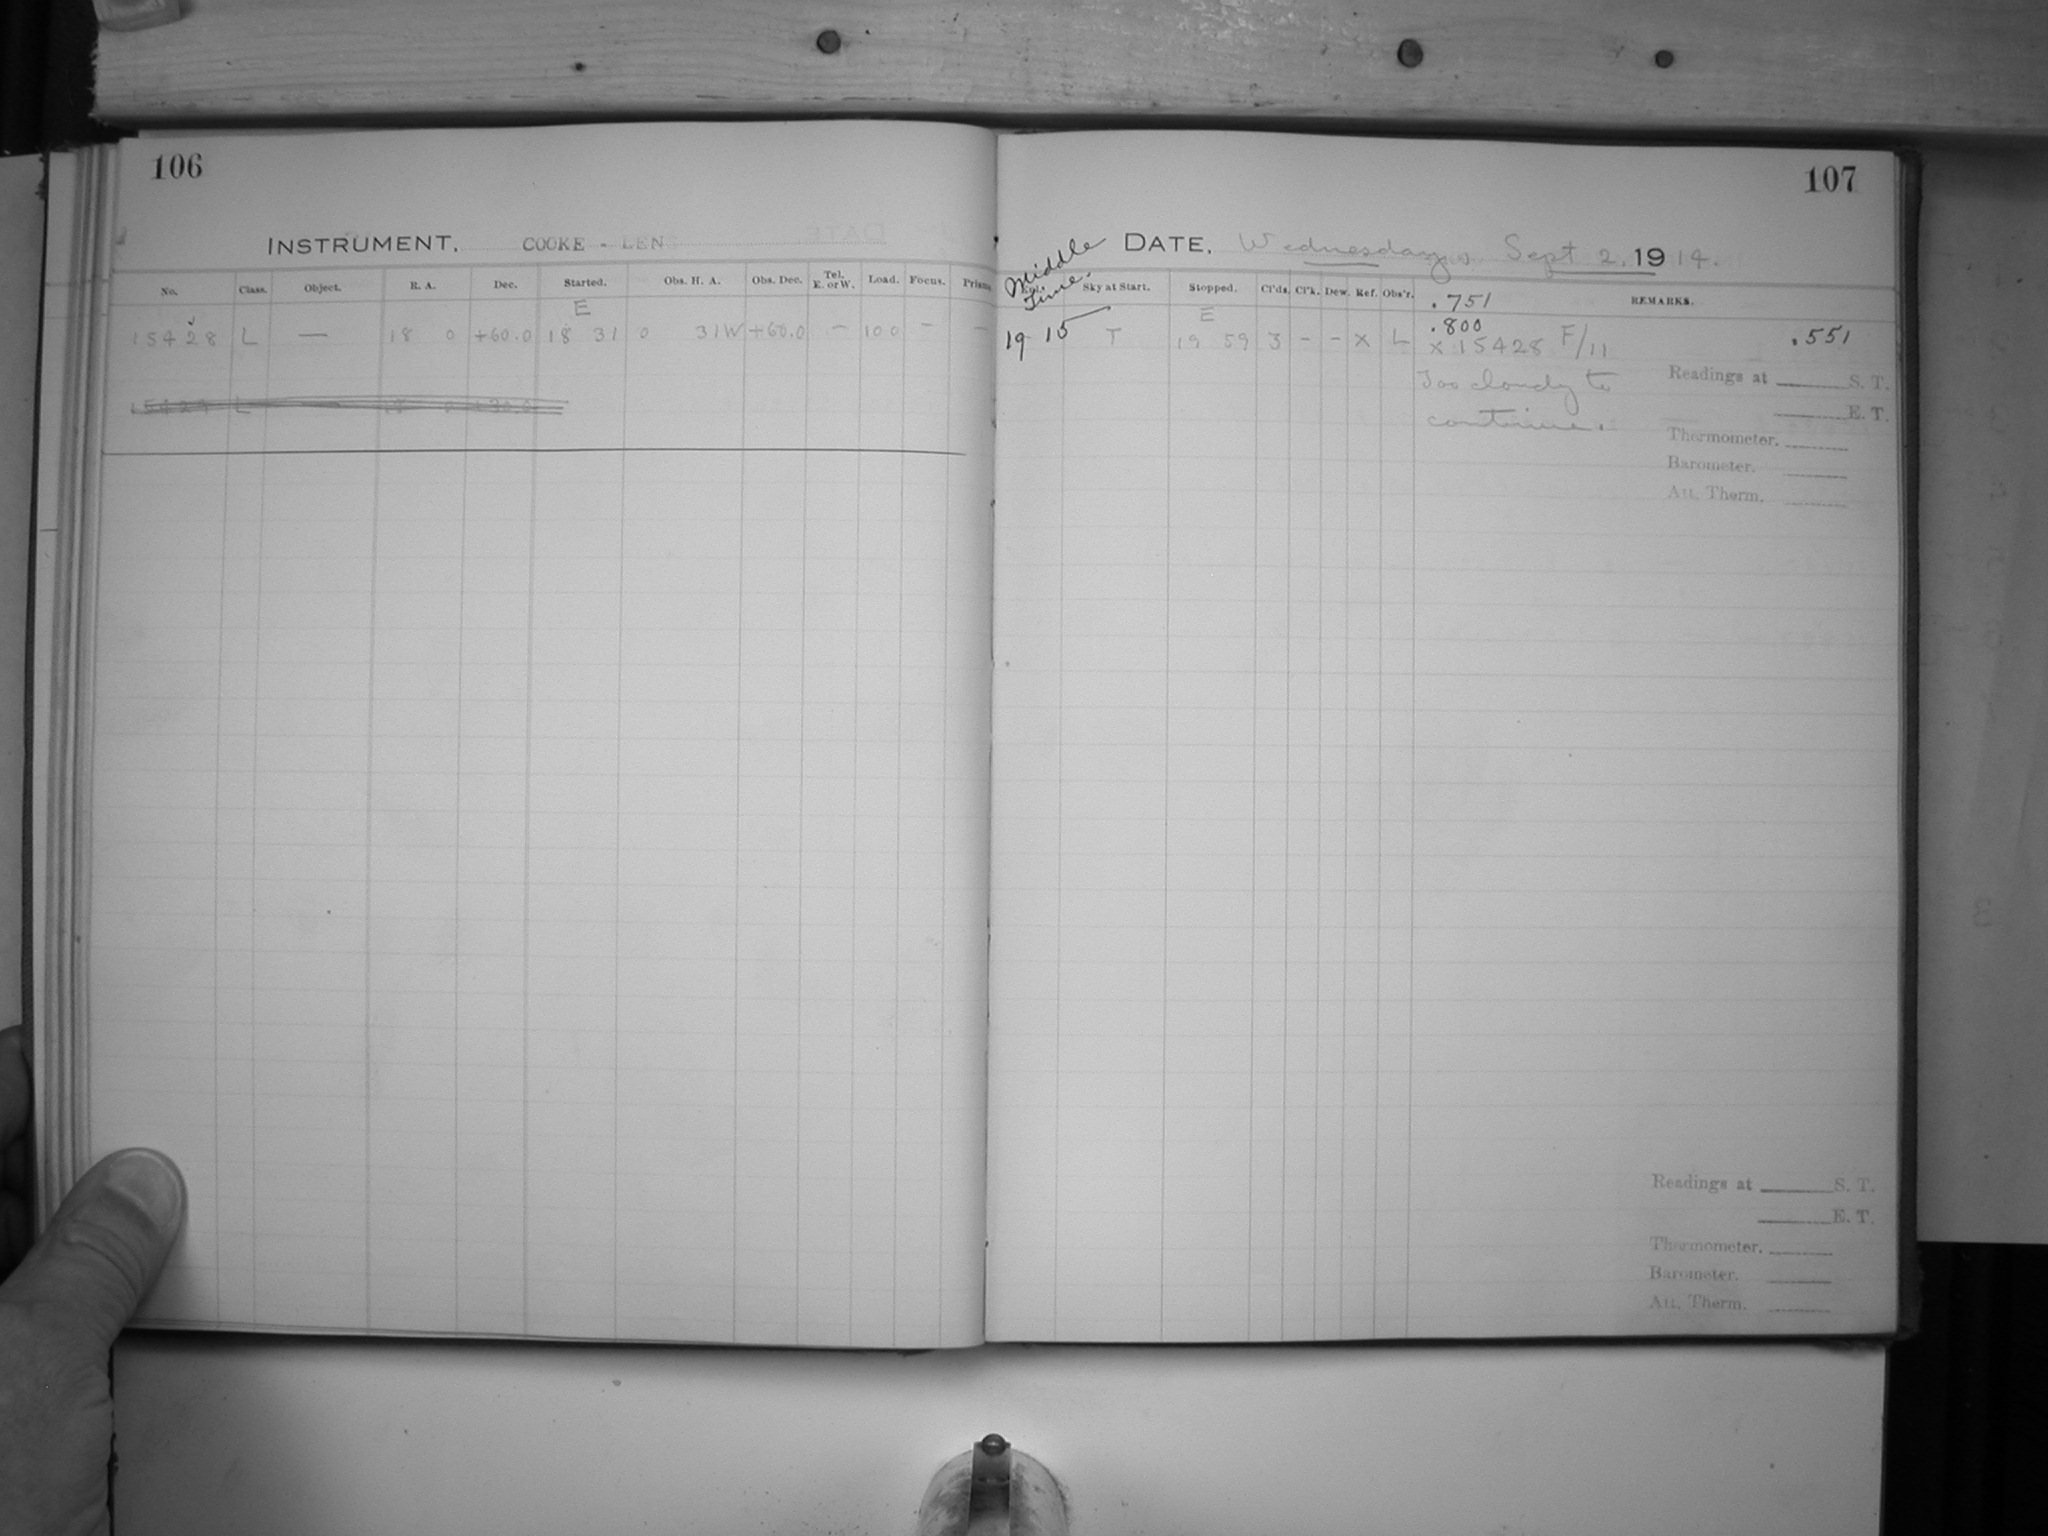 106
INSTRUMENT. COOKE - LENS
No. Class. Object. R. A. Dec. Started. Obs. H. A. Obs. Dec. Tel. E. or W. Load. Focus. Prism.
E
15428 L — 18 0 +60.0 18 31 0 31W +60.0 – 100 – –
15429 L — 18 0 +30.0
107
DATE. Wednesday, Sept 2, 1914.
Middle Time.
Sky at Start. Stopped. Cl'ds. Cl'k. Dew. Ref. Obs'r. REMARKS.
.751
E
.800
19 15 T 19 59 3 - - X L X 15428 F/11 .551
Too cloudy to
continue.
Readings at S. T.
E. T.
Thermometer.
Barometer.
Att. Therm.
Readings at S. T.
E. T.
Thermometer.
Barometer.
Att. Therm.